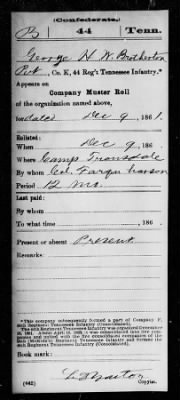 (Confederate.)
B 44 Tenn.
George H. W. Brotherton
Pvt, Co. K, 44 Reg't Tennessee Infantry.*
Appears on
Company Muster Roll
of the organization named above,
for dated Dec 9, 1861.
Enlisted:
When Dec 9, 186
Where Camp Trousdale
By whom Col. Farquharson
Period 12 mo.
Last paid:
By whom
To what time , 186 .
Present or absent Present
Remarks:
*This company subsequently formed a part of Company F,
44th Regiment Tennessee Infantry (Consolidated).
Book mark:
(642) Copyist.